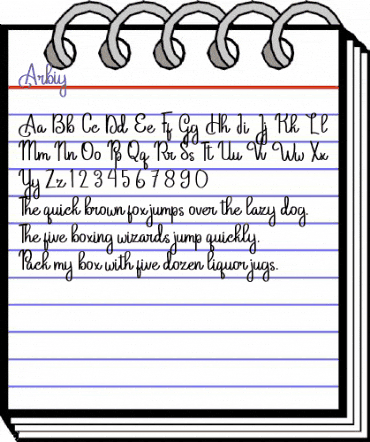 Arbiy
Aa Bb Cc Dd Ee Ff Gg Hh Ii Jj Kk Ll
Mm Nn Oo Pp Qq Rr Ss Tt Uu Vv Ww Xx
Yy Zz 1 2 3 4 5 6 7 8 9 0
The quick brown fox jumps over the lazy dog.
The five boxing wizards jump quickly.
Pack my box with five dozen liquor jugs.